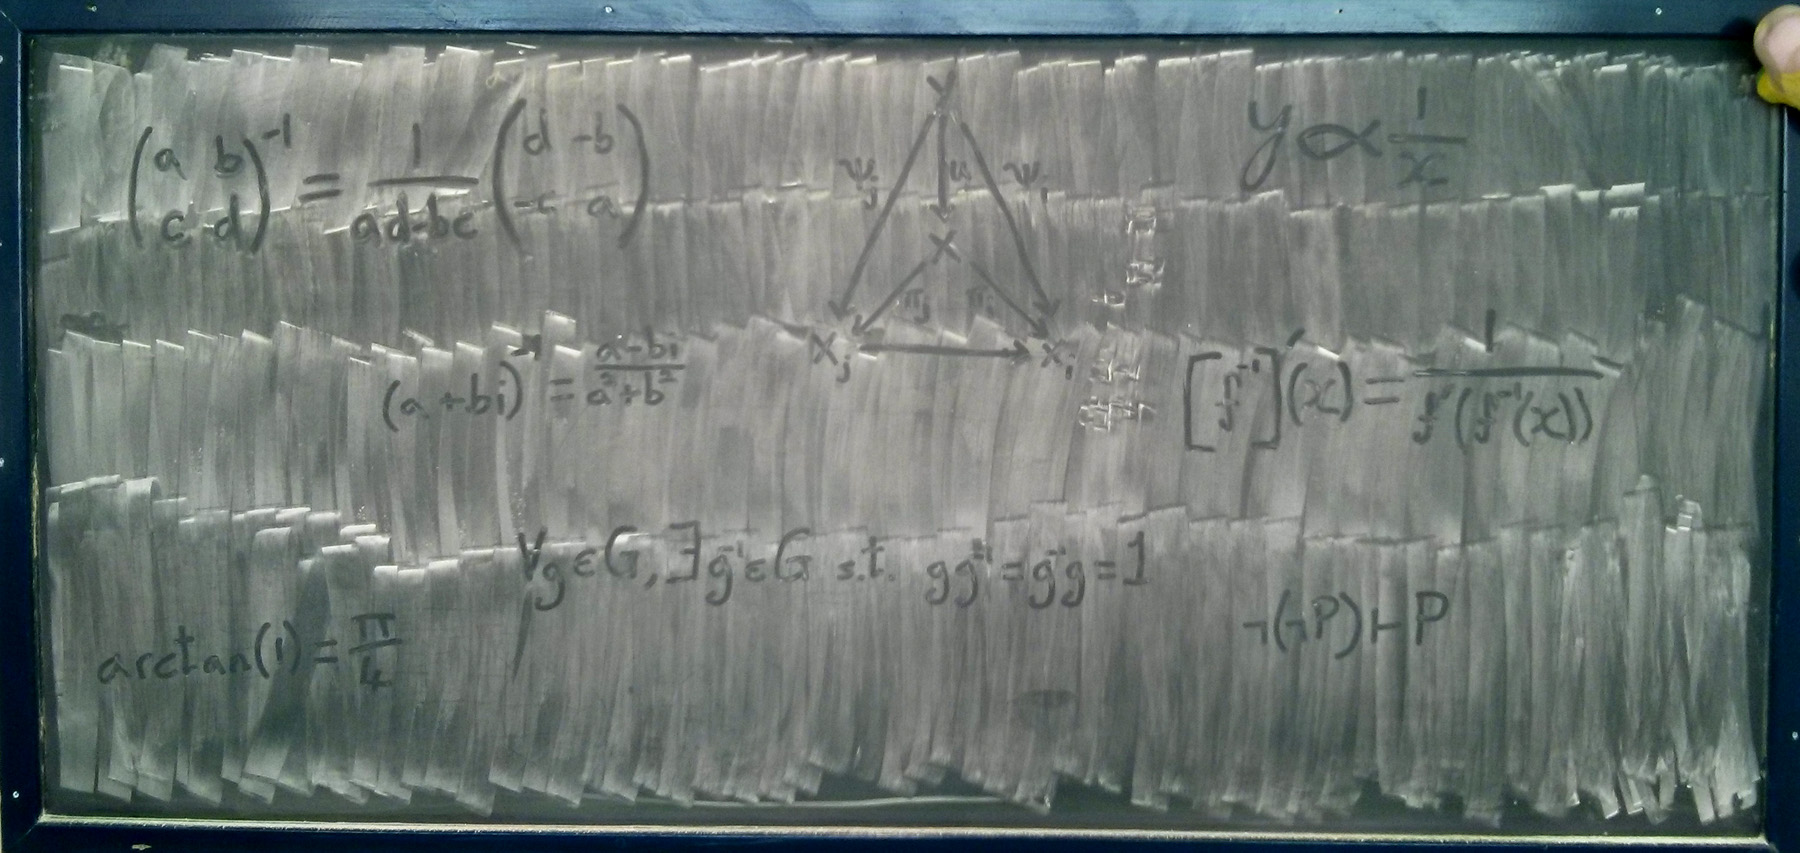 (a b
c d)⁻¹ = 1/(ad-bc) (d -b
-c a)
Y
ψj u ψi
X
πj πi
Xj Xi
y ∝ 1/x
(a+bi)⁻¹ = (a-bi)/(a²+b²)
[f⁻¹]′(x) = 1/(f′(f⁻¹(x)))
∀g∈G, ∃g⁻¹∈G s.t. gg⁻¹=g⁻¹g=1
arctan(1) = π/4
¬(¬P)⊢P